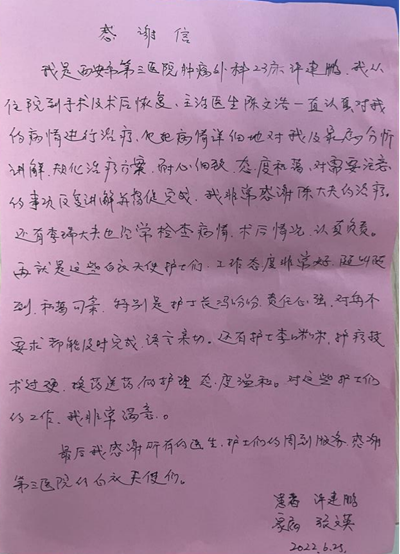 感谢信
我是西安市第三医院肿瘤外科23床许建鹏，我从
住院到手术及术后恢复，主治医生陈文浩一直认真对我
的病情进行治疗，他把病情详细地对我及家属分析
讲解，优化治疗方案，耐心细致，态度和蔼，对需要注意
的事项反复讲解并督促完成，我非常感谢陈大夫的治疗。
还有李瑞大夫也经常检查病情，术后情况，认真负责。
再就是这些白衣天使护士们，工作态度非常好，随叫随
到，和蔼可亲，特别是护士长冯份份，责任心强，对每个
要求都能及时完成，语言亲切。还有护士李，护疗技
术过硬，换药送药何护理态度温和。对这些护士们
的工作，我非常满意。
最后我感谢所有的医生，护士们的周到服务，感谢
第三医院的白衣天使们。
患者 许建鹏
家属 张文英
2022.6.23.